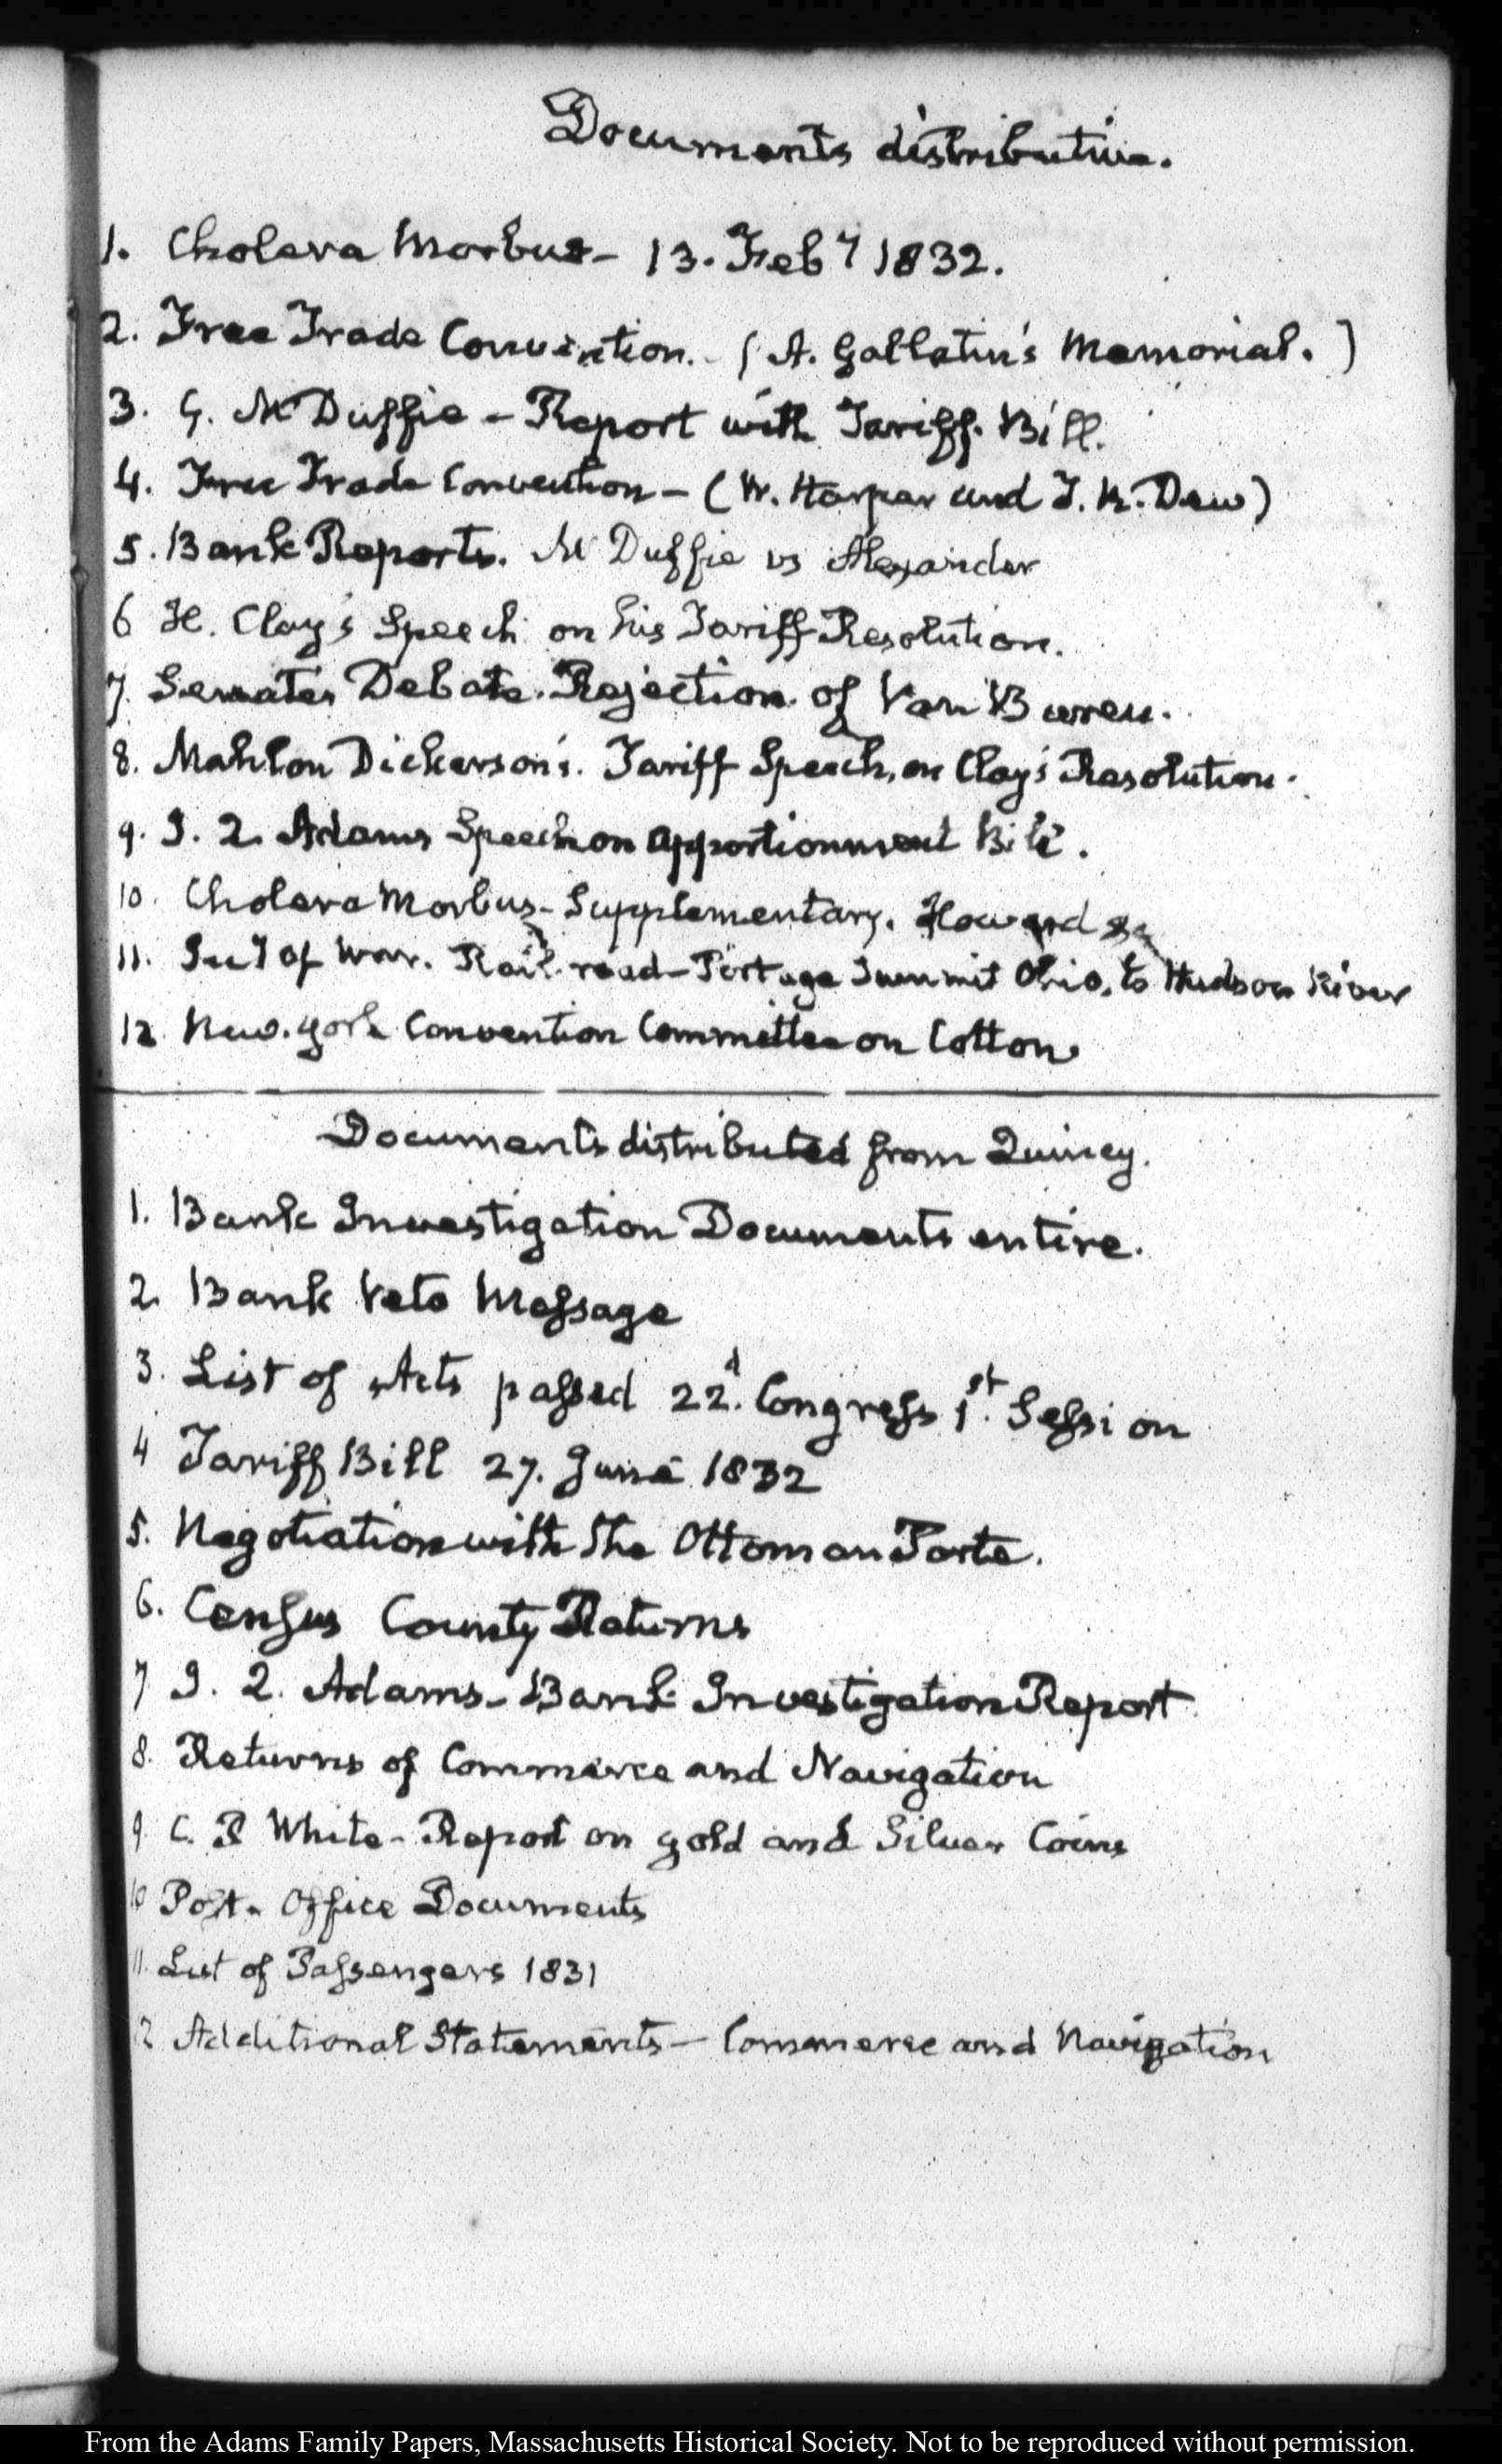 Documents distributive.
1. Cholera Morbus - 13. Feby 1832.
2. Free Trade Convention. - (A. Gallatin's Memorial.)
3. G. McDuffie - Report with Tariff. Bill.
4. Free Trade Convention - (W. Harper and T. R. Dew)
5. Bank Reports. McDuffie vs Alexander
6 H. Clay's Speech on his Tariff Resolution.
7. Senates Debate. Rejection of Van Buren.
8. Mahlon Dickerson's. Tariff Speech, on Clay's Resolution.
9. J. Q. Adams Speech on Apportionment Bill.
10. Cholera Morbus - Supplementary. Howard
11. Secy of War. Rail road - Portage Summit Ohio, to Hudson River
12 New. York Convention Committee on Cotton
Documents distributed from Quincy.
1. Bank Investigation Documents entire.
2. Bank Veto Message
3. List of Acts passed 22d. Congress 1st. Session
4 Tariff Bill 27. June 1832
5. Negotiation with the Ottoman Porte.
6. Census County Returns
7 J. Q. Adams - Bank Investigation Report
8. Returns of Commerce and Navigation
9. C. P White - Report on gold and Silver Coins
10 Post - Office Documents
11. List of Passengers 1831
12 Additional Statements - Commerce and Navigation
From the Adams Family Papers, Massachusetts Historical Society. Not to be reproduced without permission.